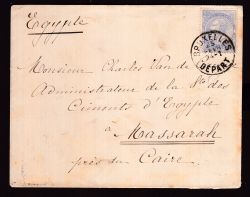 Egypte
BRUXELLES
DÉPART
Monsieur Charles Van de
Administrateur de la Sté des
Ciments d'Egypte
à
Massarah
près du Caire